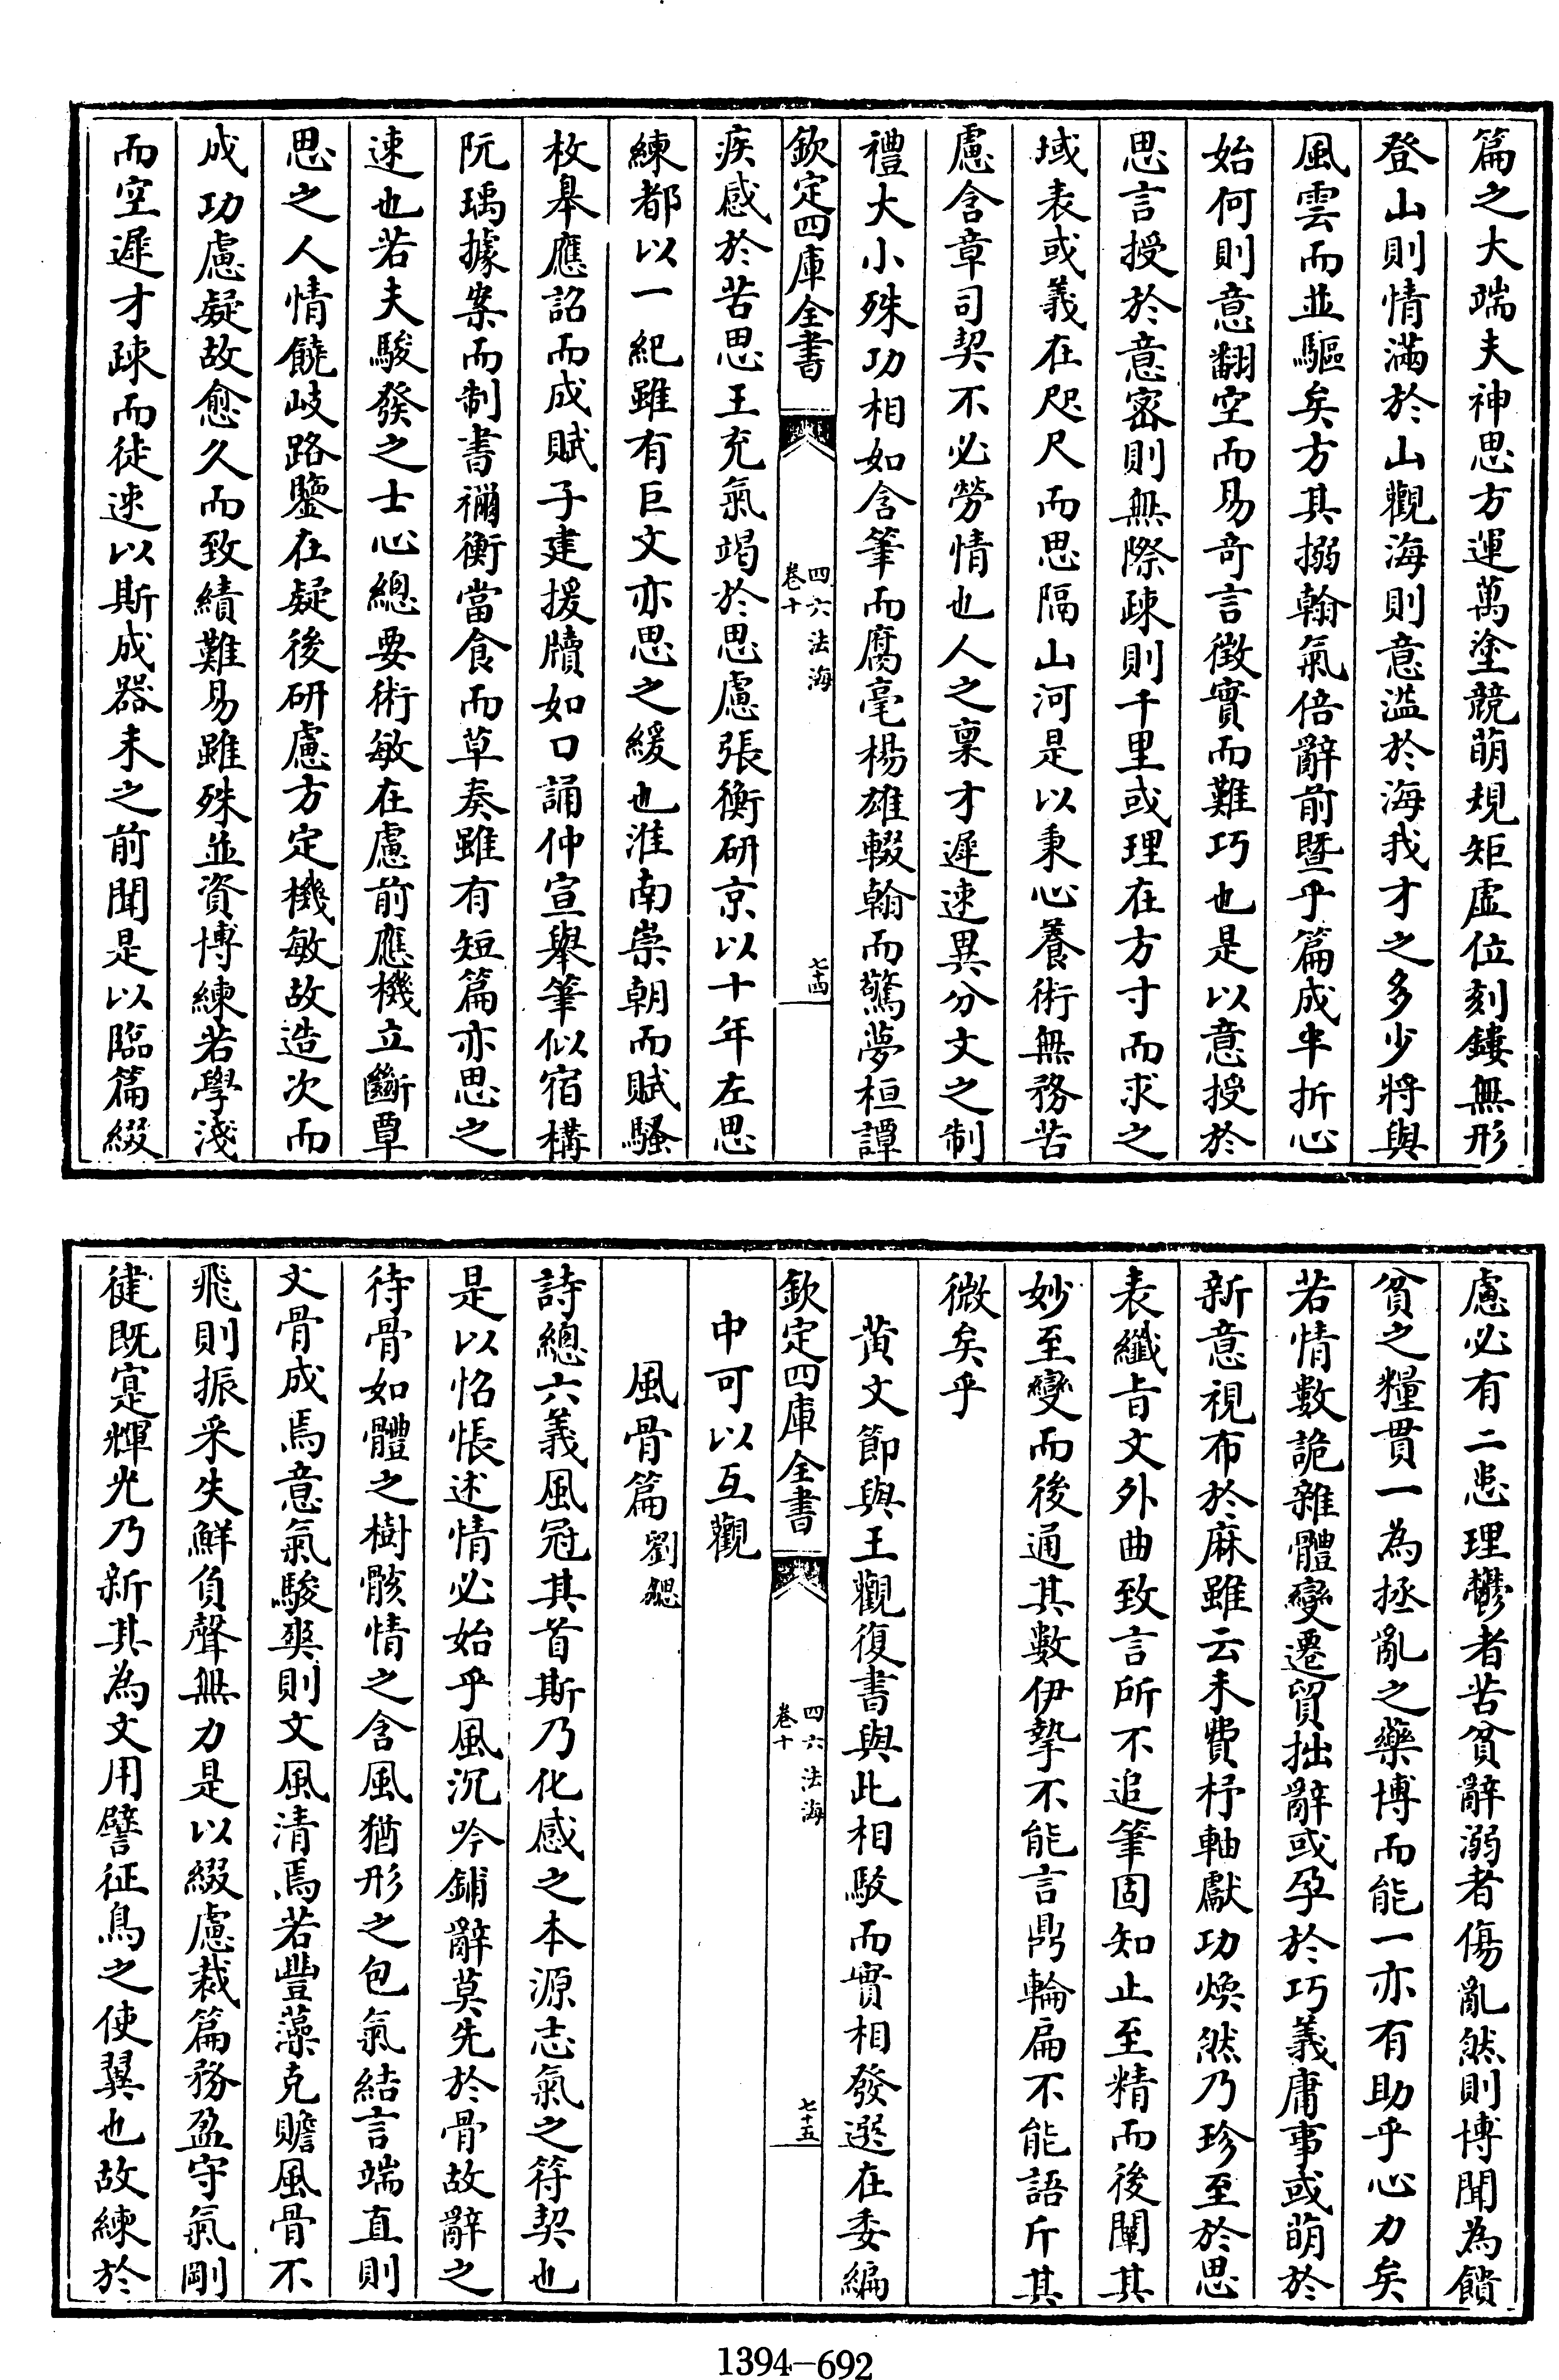 篇之大端夫神思方運萬塗競萌規矩虛位刻鏤無形
登山則情滿於山觀海則意溢於海我才之多少將與
風雲而並驅矣方其搦翰氣倍辭前暨乎篇成半折心
始何則意翻空而易奇言徵實而難巧也是以意授於
思言授於意密則無際疎則千里或理在方寸而求之
域表或義在咫尺而思隔山河是以秉心養術無務苦
慮含章司契不必勞情也人之稟才遲速異分文之制
禮大小殊功相如含筆而腐毫楊雄輟翰而驚夢桓譚
欽定四庫全書
四六法海
卷十
七十四
疾感於苦思王充氣竭於思慮張衡研京以十年左思
練都以一紀雖有巨文亦思之緩也淮南崇朝而賦騷
枚皋應詔而成賦子建援牘如口誦仲宣舉筆似宿構
阮瑀據案而制書禰衡當食而草奏雖有短篇亦思之
速也若夫駿發之士心總要術敏在慮前應機立斷覃
思之人情饒岐路鑒在疑後研慮方定機敏故造次而
成功慮疑故愈久而致績難易雖殊並資博練若學淺
而空遲才疎而徒速以斯成器未之前聞是以臨篇綴
慮必有二患理鬱者苦貧辭溺者傷亂然則博聞為饋
貧之糧貫一為拯亂之藥博而能一亦有助乎心力矣
若情數詭雜體變遷貿拙辭或孕於巧義庸事或萌於
新意視布於麻雖云未費杼軸獻功煥然乃珍至於思
表纖旨文外曲致言所不追筆固知止至精而後闡其
妙至變而後通其數伊摯不能言鼎輪扁不能語斤其
微矣乎
黃文節與王觀復書與此相駁而實相發選在委編
欽定四庫全書
四六法海
卷十
七十五
中可以互觀
風骨篇劉勰
詩總六義風冠其首斯乃化感之本源志氣之符契也
是以怊悵述情必始乎風沉吟鋪辭莫先於骨故辭之
待骨如體之樹骸情之含風猶形之包氣結言端直則
文骨成焉意氣駿爽則文風清焉若豐藻克贍風骨不
飛則振采失鮮負聲無力是以綴慮裁篇務盈守氣剛
健既寔輝光乃新其為文用譬征鳥之使翼也故練於
1394-692